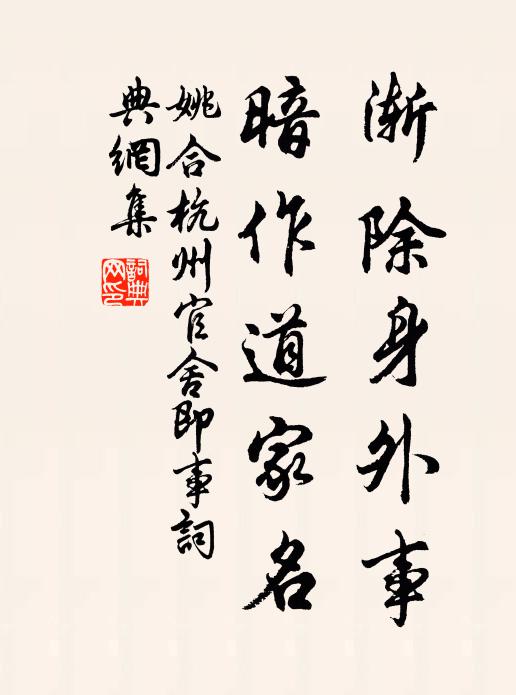 漸除身外事
暗作道家名
姚合杭州官舍即事詞
典網集
詞典网印